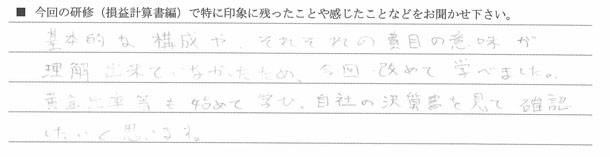 ■ 今回の研修（損益計算書編）で特に印象に残ったことや感じたことなどをお聞かせ下さい。
基本的な構成や、それぞれの費目の意味が
理解出来ていなかったため、今回 改めて学べました。
黄金比率等も始めて学び、自社の決算書を見て確認
したいと思います。